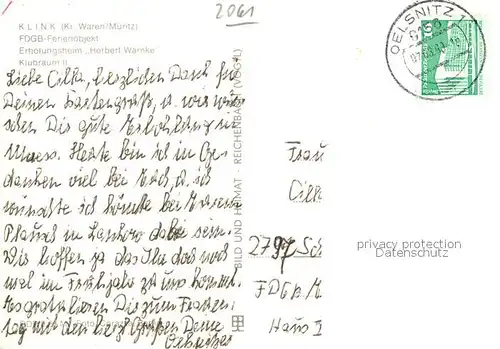 2061
KLINK (Kr. Waren/Müritz)
FDGB-Ferienobjekt
Erholungsheim „Herbert Warnke"
Klubraum II
Liebe Cilka, herzlichen Dank für
Deinen Kartengruß, u. wir wün
schen Dir gute Erholung
Heute bin ich in Ge
danken viel bei Euch, u. ich
wünschte ich könnte bei Eurem
Plausch in dabei sein.
Wir hoffen ja das Ihr das noch
mal im Frühjahr zu uns kommt.
Es gratulieren Dir zum Frauen
tag mit den herzl. Grüßen Deine
Oelsnitzer
BILD UND HEIMAT · REICHENBACH (VOGTL)
OELSNITZ
Frau
2797
FDGB
Haus
privacy protection
Datenschutz